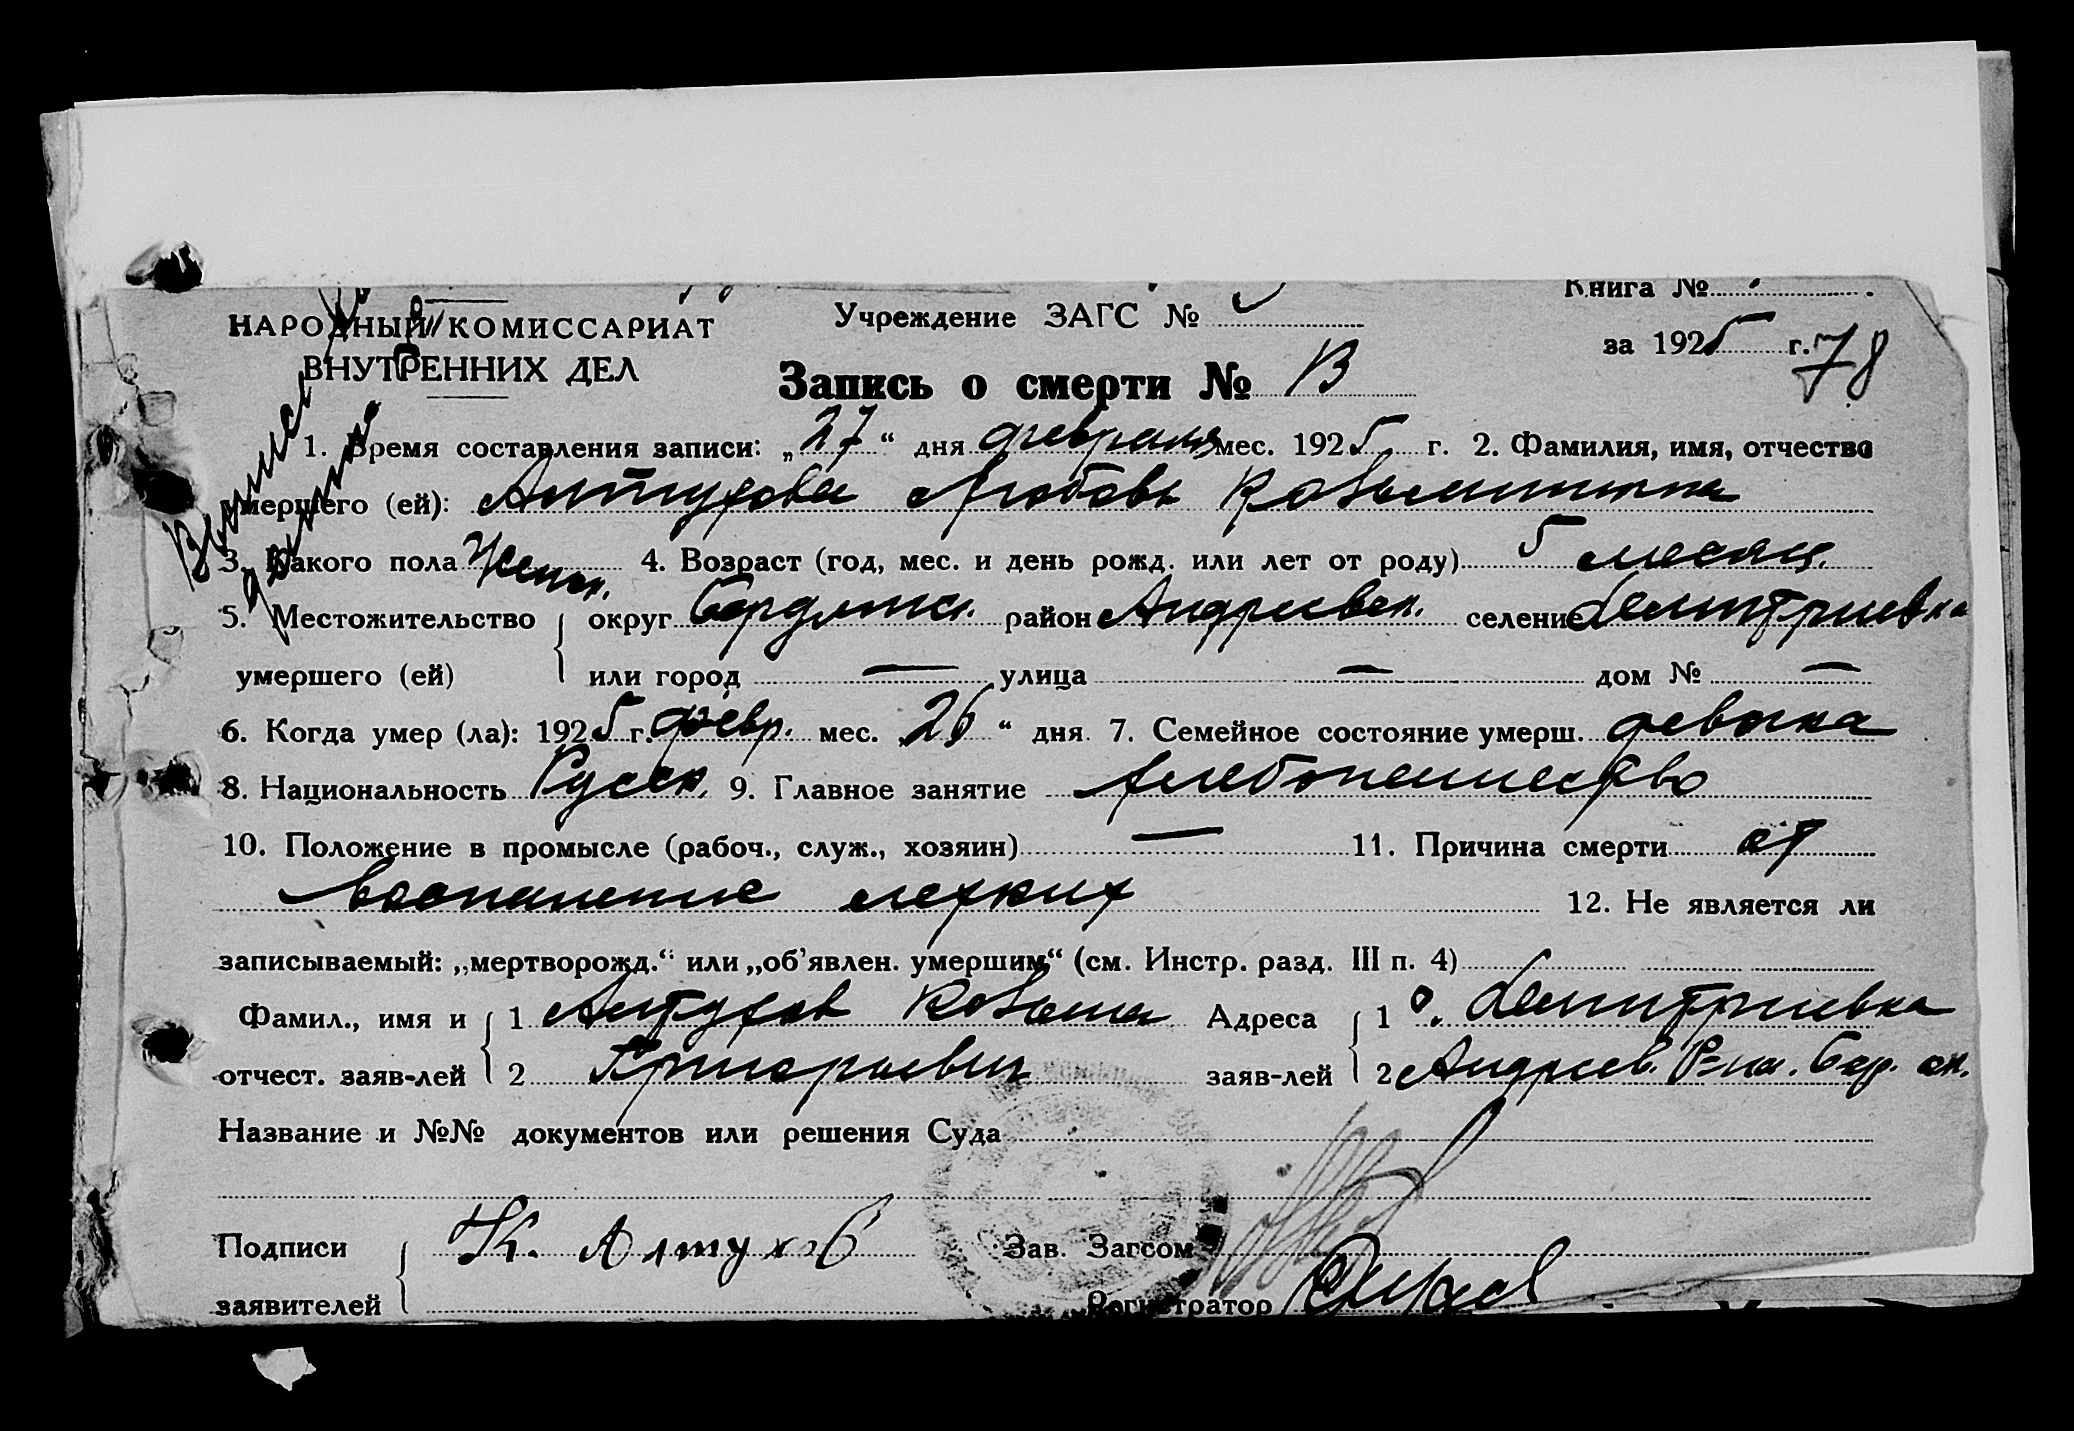 Книга №
НАРОДНЫЙ КОМИССАРИАТ
ВНУТРЕННИХ ДЕЛ
Учреждение ЗАГС №
за 1925 г. 78
Запись о смерти № 13
1. Время составления записи: „27“ дня февраля мес. 1925 г. 2. Фамилия, имя, отчество
умершего (ей): Алтухова Любовь Козьминична
3. Какого пола Женск. 4. Возраст (год, мес. и день рожд. или лет от роду) 5 месяц.
5. Местожительство округ Бердянск. район Андреевск. селение Дмитриевка
умершего (ей) или город — улица — дом № —
6. Когда умер (ла): 1925 г. февр. мес. 26“ дня. 7. Семейное состояние умерш. девочка
8. Национальность Русск. 9. Главное занятие хлебопашество
10. Положение в промысле (рабоч., служ., хозяин) — 11. Причина смерти от
воспаление легких 12. Не является ли
записываемый: „мертворожд.“ или „об'явлен. умершим“ (см. Инстр. разд. III п. 4)
Фамил., имя и 1 Алтухов Козьма Адреса 1 с. Дмитриевка
отчест. заяв-лей 2 Григорьевич заяв-лей 2 Андреев. Р-на. Бер. ок.
Название и №№ документов или решения Суда
Подписи К. Алтухов Зав. Загсом
заявителей Регистратор